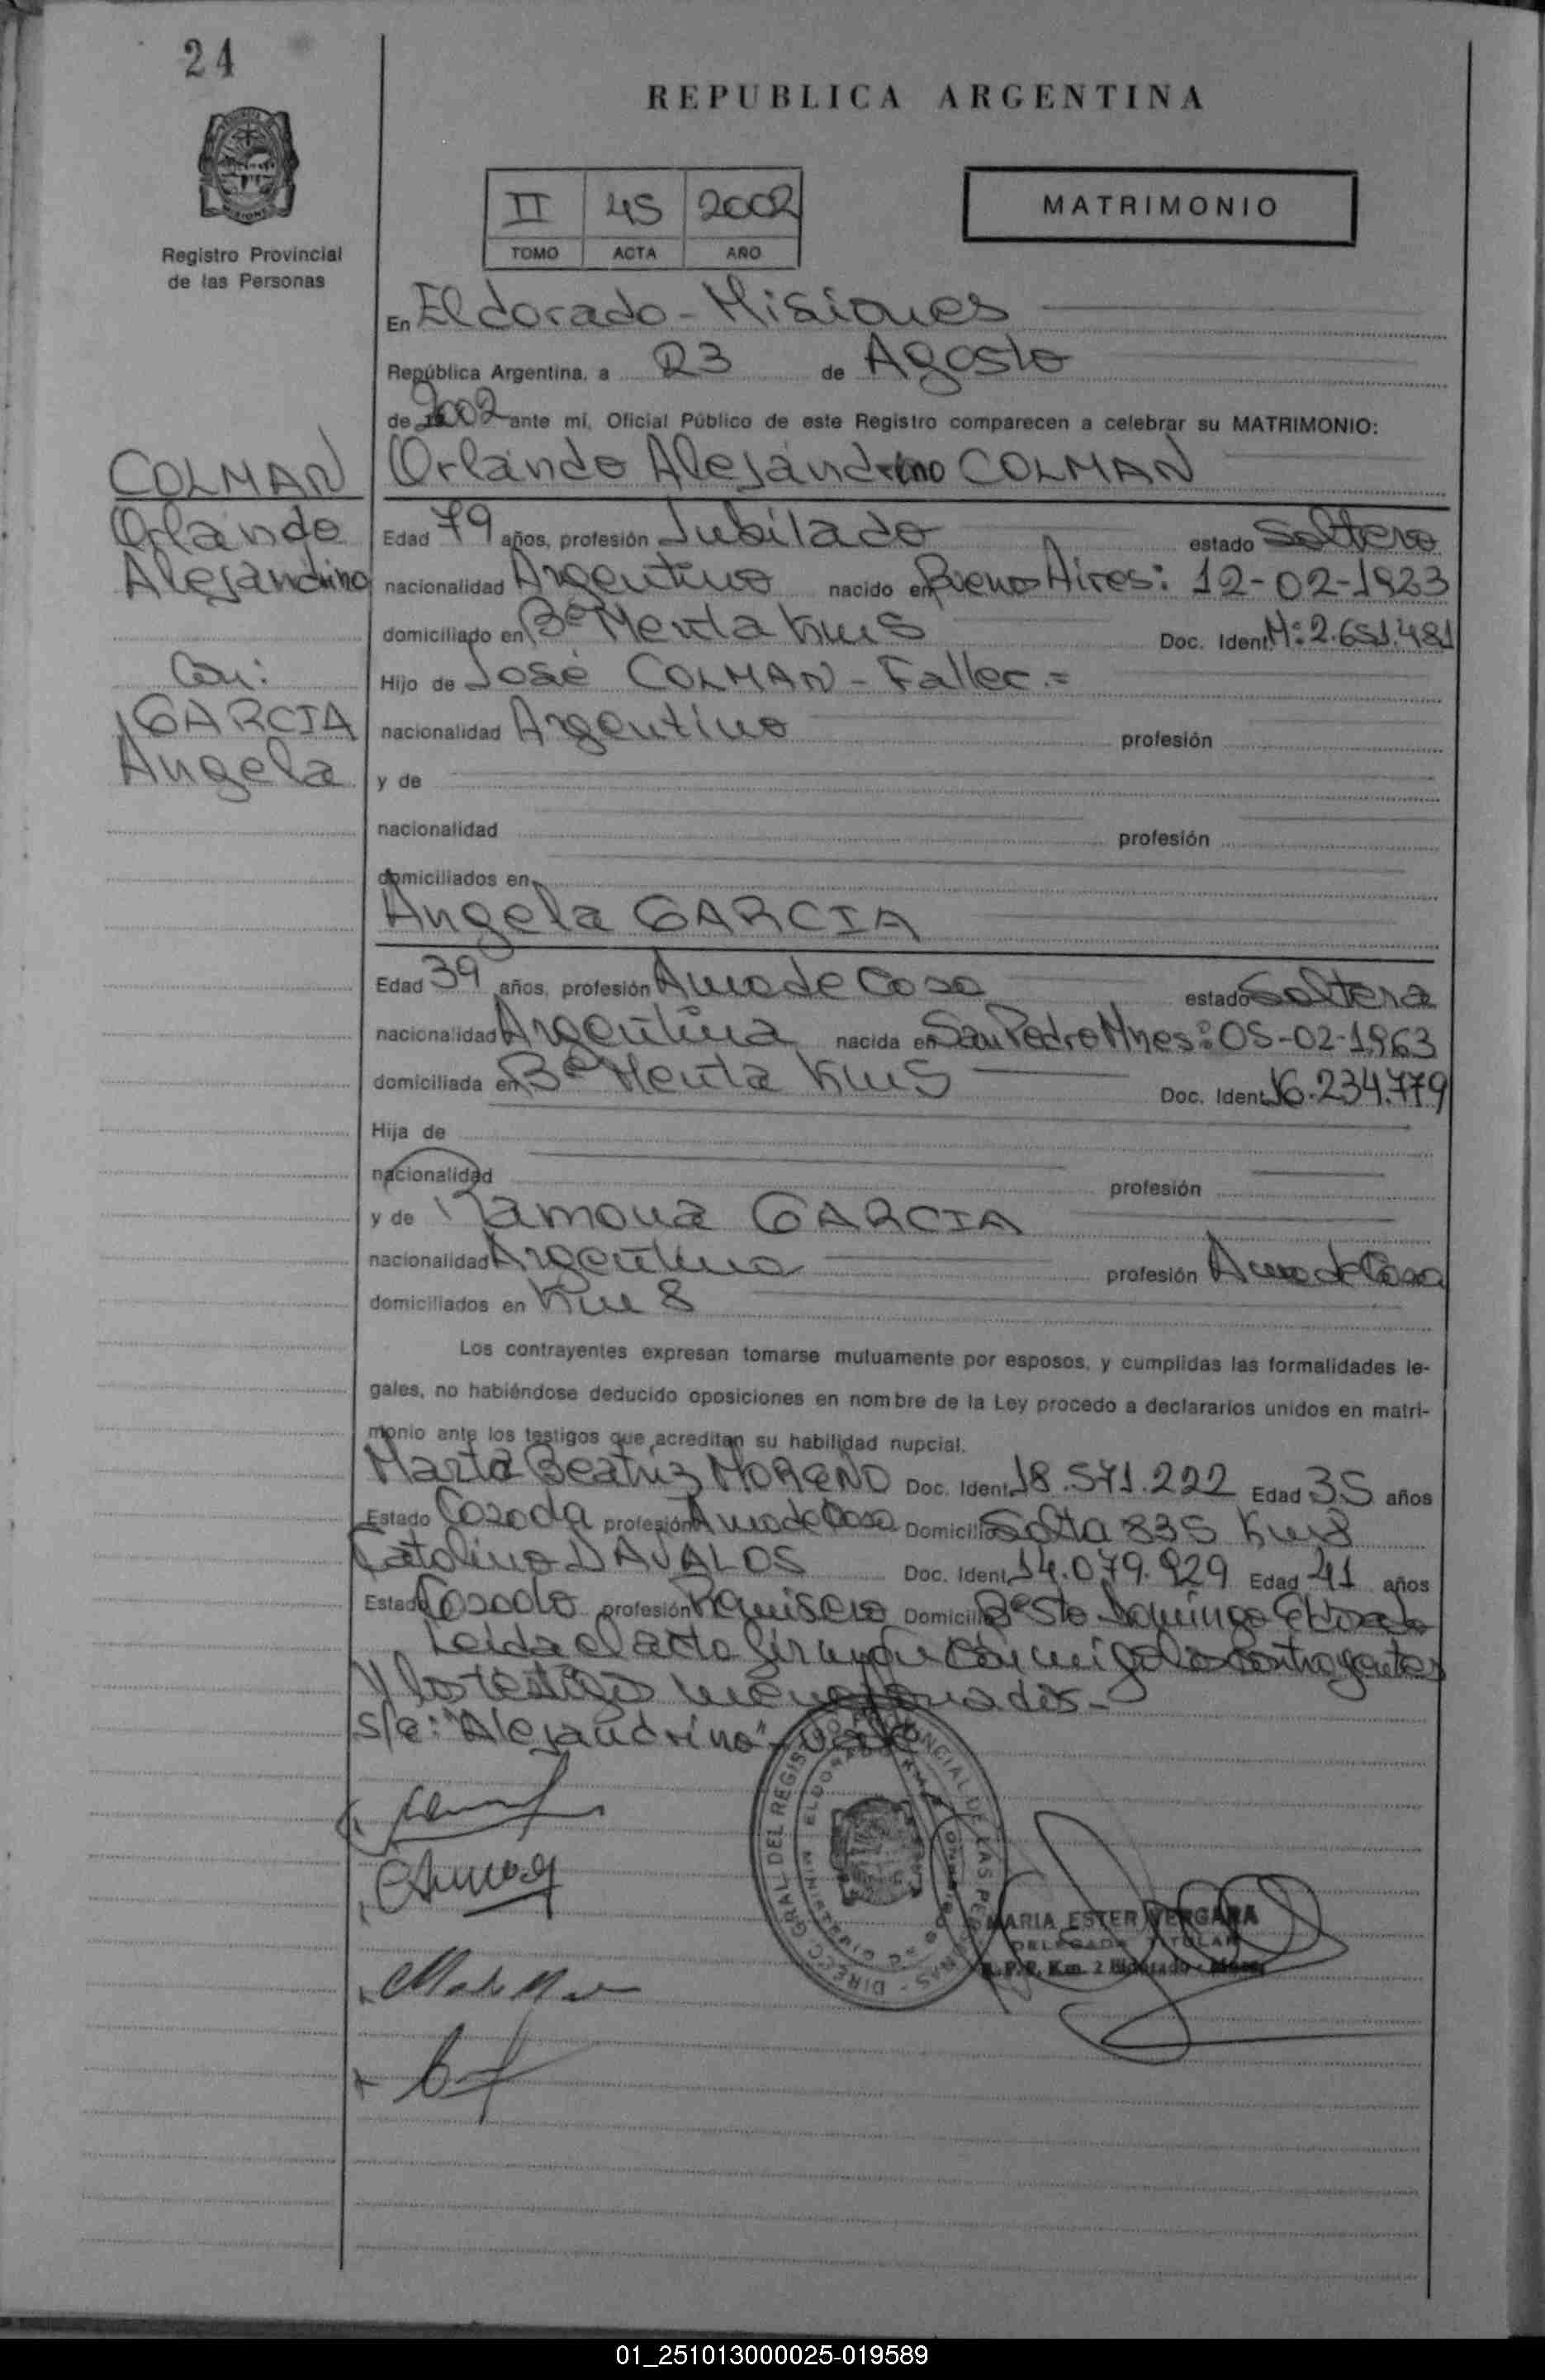 24
REPUBLICA ARGENTINA
MISIONES
Registro Provincial
de las Personas
II 45 2002
TOMO ACTA AÑO
MATRIMONIO
En Eldorado - Misiones
República Argentina, a 23 de Agosto
de 2002 ante mí, Oficial Público de este Registro comparecen a celebrar su MATRIMONIO:
COLMAN
Orlando
Alejandrino
Con:
GARCIA
Angela
Orlando Alejandrino COLMAN
Edad 79 años, profesión Jubilado estado Soltero
nacionalidad Argentino nacido en Buenos Aires: 12-02-1923
domiciliado en Bº Km 8 Doc. Ident. M: 2.651.481
Hijo de José COLMAN - Fallec. =
nacionalidad Argentino profesión
y de
nacionalidad profesión
domiciliados en
Angela GARCIA
Edad 39 años, profesión Ama de Casa estado Soltera
nacionalidad Argentina nacida en San Pedro Mnes: 05-02-1963
domiciliada en Bº Km 8 Doc. Ident. 16.234.779
Hija de
nacionalidad profesión
y de Ramona GARCIA
nacionalidad Argentina profesión Ama de Casa
domiciliados en Km 8
Los contrayentes expresan tomarse mutuamente por esposos, y cumplidas las formalidades le-
gales, no habiéndose deducido oposiciones en nombre de la Ley procedo a declararlos unidos en matri-
monio ante los testigos que acreditan su habilidad nupcial.
Marta Beatriz MORENO Doc. Ident. 18.571.222 Edad 35 años
Estado Casada profesión Ama de Casa Domicilio Salta 835 Km 8
Catalino DAVALOS Doc. Ident. 14.079.929 Edad 41 años
Estado Casado profesión Domicilio Bº Sto Domingo Eldorado
Leida el acta firman con mi los contrayentes
y los testigos mencionados -
s/e: "Alejandrino" - vale
DIRECC. GRAL. DEL REGISTRO PROVINCIAL DE LAS PERSONAS
MARIA ESTER VERGARA
DELEGADA TITULAR
R.P.P. Km. 2 Eldorado - Mnes.
01_251013000025-019589